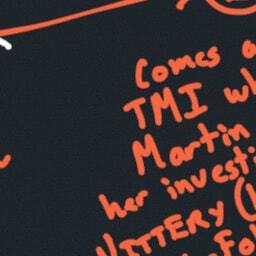 Comes a
TMI wh
Martin
her investi
VITTERY (
Fol